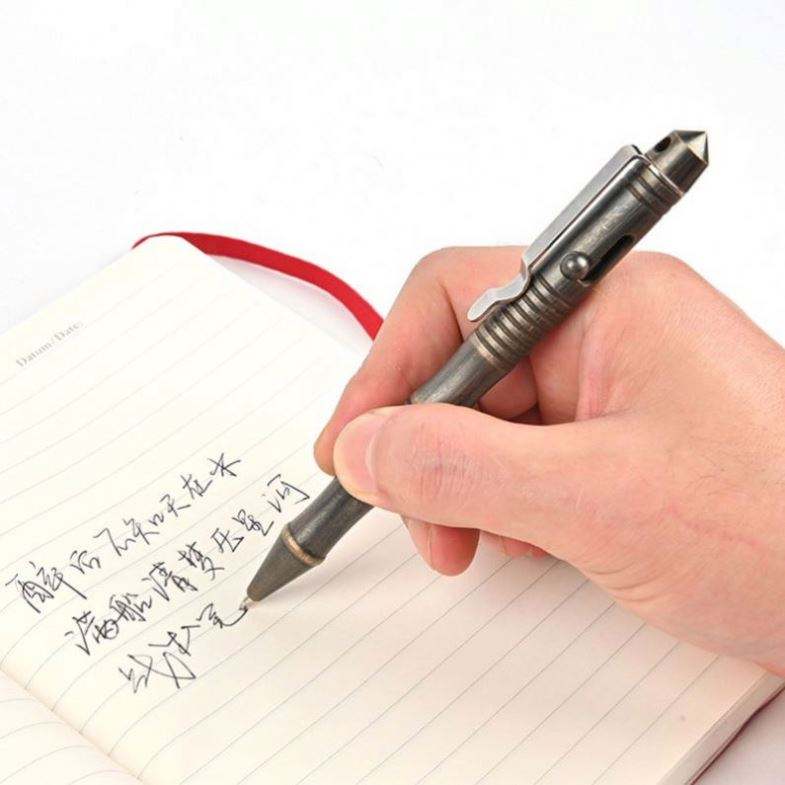 Datum/Date:
醉后不知天在水
满船清梦压星河